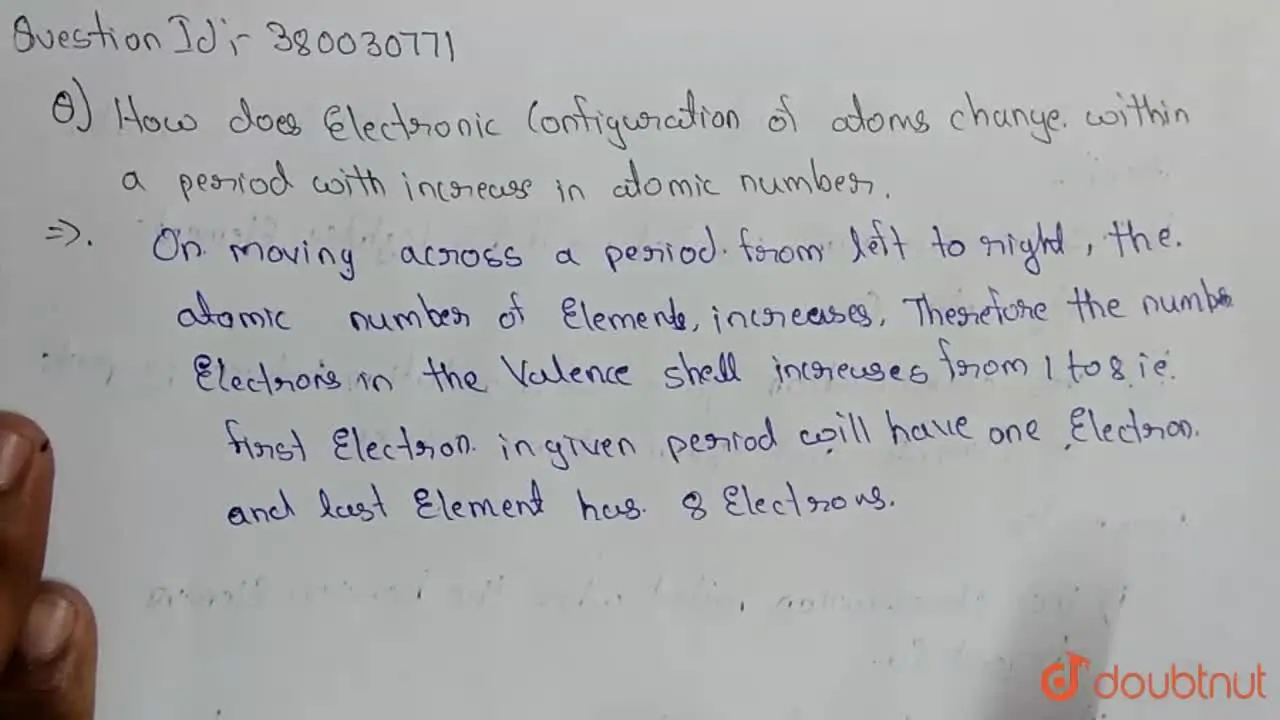 Question Id:- 380030771
Q) How does Electronic Configuration of atoms change within
a period with increase in atomic number.
=>. On moving across a period from left to right, the
atomic number of Elements, increases, Therefore the numbe
Electrons in the Valence shell increases from 1 to 8 ie.
first Electron in given period will have one Electron.
and last Element has 8 Electrons.
doubtnut